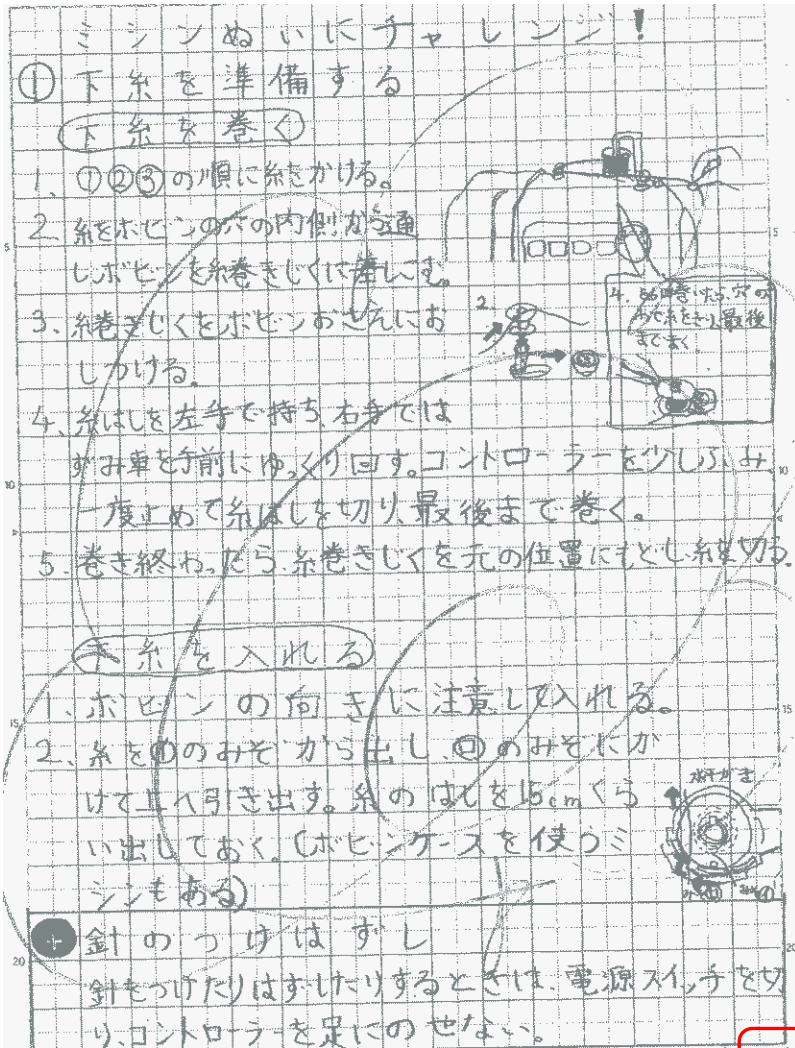 ミシンぬいにチャレンジ!
① 下糸を準備する
下糸を巻く
1、①②③の順に糸をかける。
2、糸をボビンの穴の内側から通
しボビンを糸巻きじくに差しこむ。
3、糸巻きじくをボビンおさえにお
しつける。
4、糸はしを左手で持ち、右手では
ずみ車を手前にゆっくり回す。コントローラーを少しふみ
一度止めて糸はしを切り、最後まで巻く。
5、巻き終わったら、糸巻きじくを元の位置にもどし、糸を切る。
2.
4、 回巻いたら、穴の
糸をきり、最後
までまく
下糸を入れる
1、ボビンの向きに注意して入れる。
2、糸を㋑のみぞから出し、㋺のみぞにか
けて上へ引き出す。糸のはしを15cmくら
い出しておく。(ボビンケースを使うミ
シンもある)
水平がま
みぞ㋺ みぞ㋑
針のつけはずし
針をつけたりはずしたりするときは、電源スイッチを切
り、コントローラーを足にのせない。
5
10
15
20
5
10
15
20